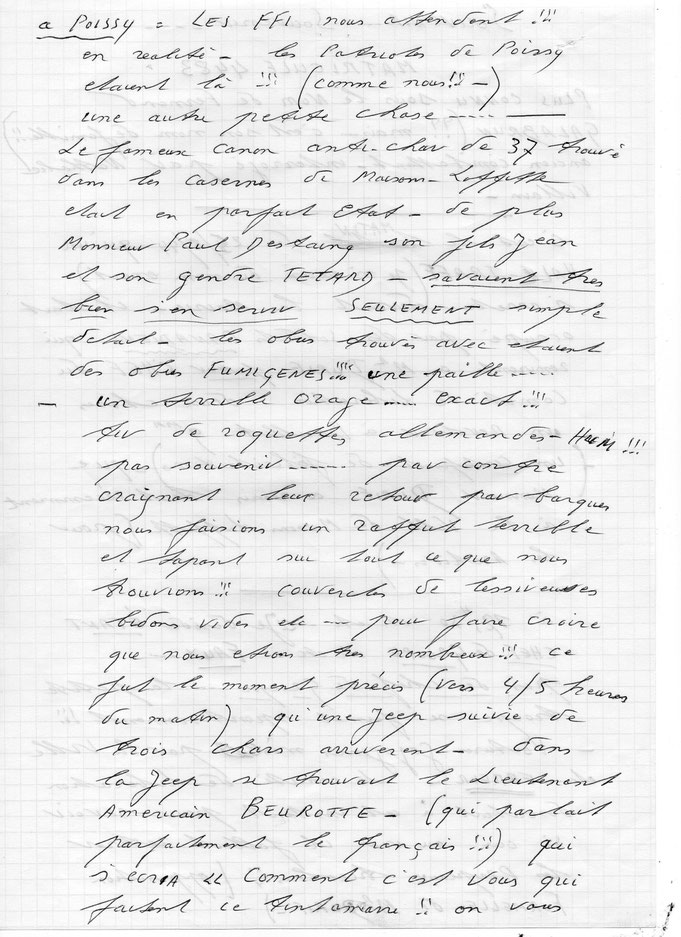 a Poissy = LES FFI nous attendent !!!
en realité - les Patriotes de Poissy
etaient là !!! (comme nous !! -)
une autre petite chose ----- ——
Le fameux canon anti-char de 37 trouvé
dans les casernes de Maisons-Laffitte
etait en parfait Etat - de plus
Monsieur Paul Destaing son fils Jean
et son gendre TETARD - savaient tres
bien s'en servir SEULEMENT simple
detail - les obus trouvés avec etaient
des obus FUMIGENES !!!! une paille .....
- un terrible orage ..... exact !!!
tir de roquettes allemandes - HUEM !!!
pas souvenir ...... par contre
craignant leur retour par barques
nous faisions un raffut terrible
et tapant sur tout ce que nous
trouvions !!! couvercles de lessiveuses
bidons vides etc --- pour faire croire
que nous etions tres nombreux !!! ce
fut le moment précis (vers 4/5 heures
du matin) qu'une Jeep suivie de
trois chars arriverent - dans
la Jeep se trouvait le Lieutenant
Americain BEUROTTE - (qui parlait
parfaitement le français !!!) qui
s'ecria << Comment c'est vous qui
faitent ce tintamarre !! on vous